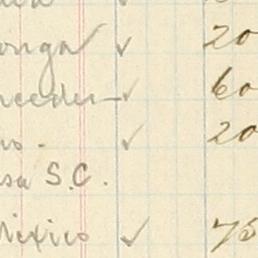 onga ✓ 20
needer ✓ 60
✓ 20
sa S.C.
Mexico ✓ 75